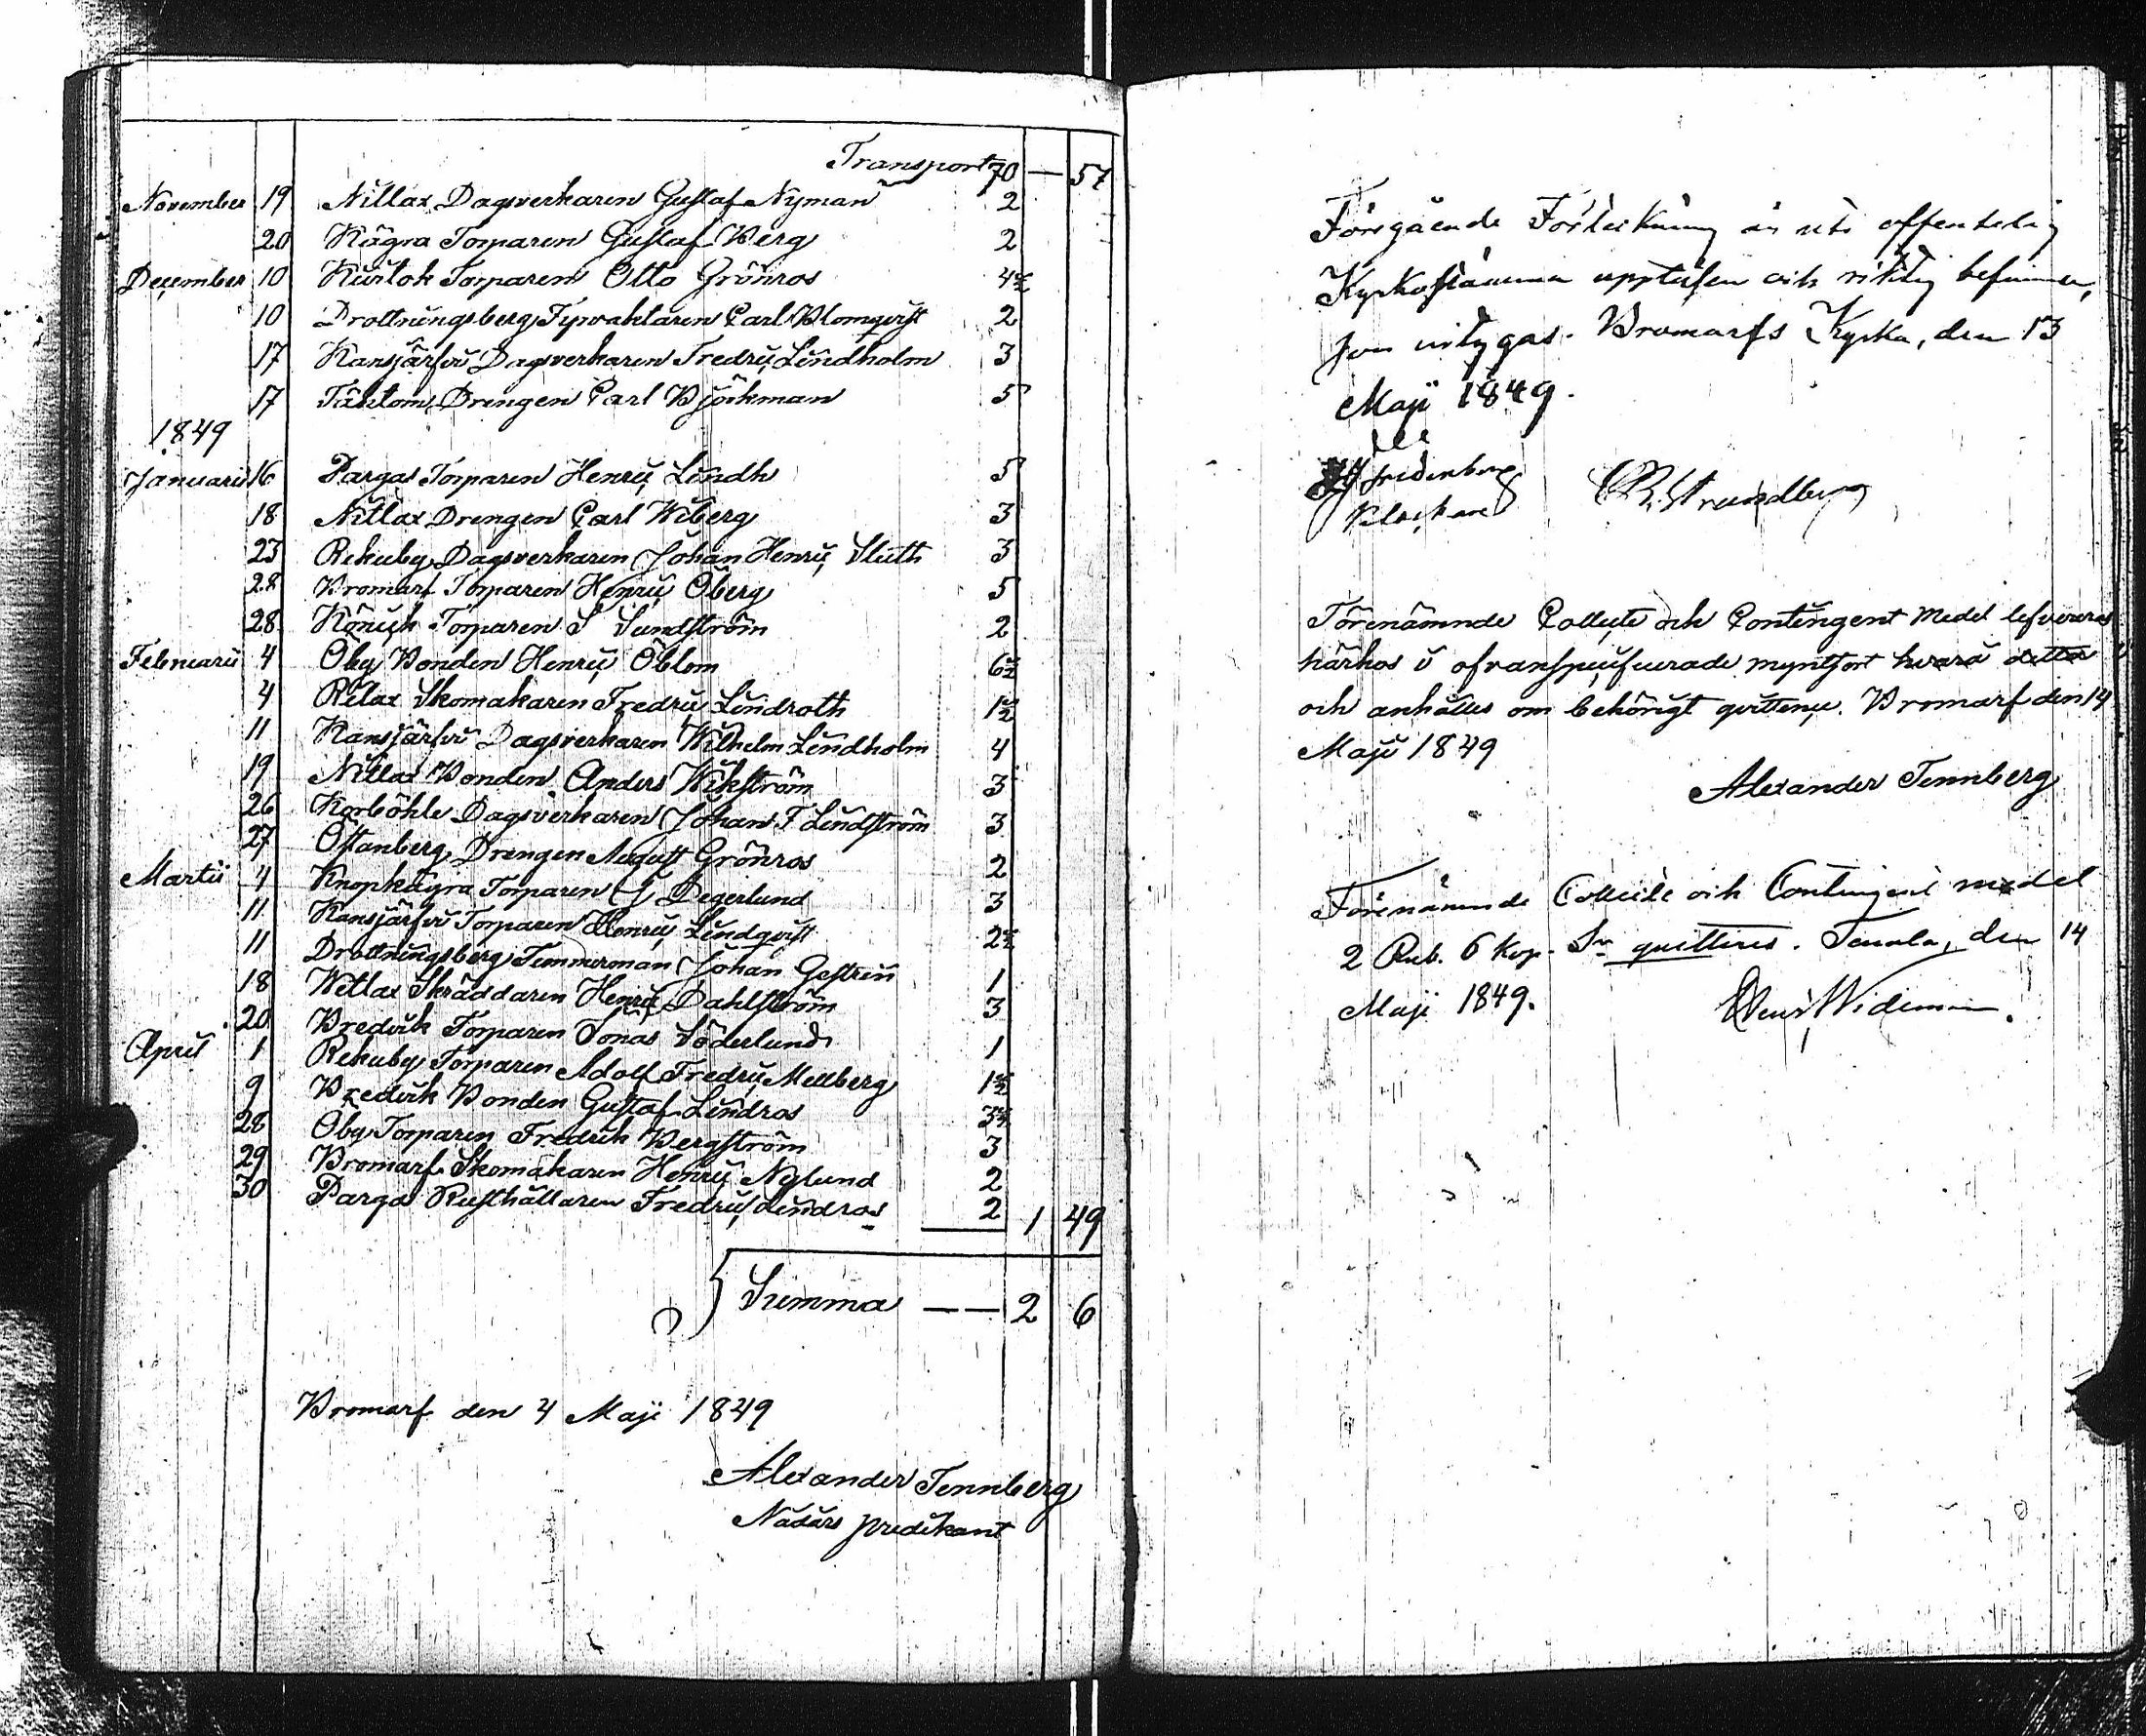 Transport 70 — 57
November 19 Nitlax Dagsverkaren Gustaf Nyman 2
20 Kägra Torparen Gustaf Berg 2
December 10 Kurlok Torparen Otto Grönros 4½
10 Drottningsberg Fyrvaktaren Carl Blomqvist 2
17 Kansjärfvi Dagsverkaren Fredric Lindholm 3
17 Täktom Drengen Carl Björkman 5
1849
Januarii 16 Pargas Torparen Henric Lindh 5
18 Nitlax Drengen Carl Wiberg 3
23 Rekuby Dagsverkaren Johan Henric Sluth 3
28 Bromarf Torparen Henric Öberg 5
28 Torparen S Sundström 2
Februarii 4 Öby Bonden Henric Öblom 6½
4 Rilax Skomakaren Fredric Lindroth 1½
11 Kansjärfvi Dagsverkaren Wilhelm Lindholm 4
19 Nitlax Bonden Anders Wikström 3
26 Korböhle Dagsverkaren Johan F Lindström 3
27 Östanberg Drengen August Grönros 2
Martii 4 Knopkägra Torparen G Degerlund 3
11 Kansjärfvi Torparen Henric Lindqvist 2½
11 Drottningsberg Timmerman Johan Gestrin 1
18 Wetlax Skräddaren Henric Dahlström 3
20 Bredvik Torparen Jonas Söderlund 1
April 1 Rekuby Torparen Adolf Fredric Mellberg 1½
9 Bredvik Bonden Gustaf Lindros 3½
28 Öby Torparen Fredrik Bergström 3
29 Bromarf Skomakaren Henric Nylund 2
30 Parga Rusthållaren Fredric Lindros 2 1 49
Summa — — 2 6
Bromarf den 4 Maji 1849
Alexander Tennberg
Nådårs predikant
Föregående Förteckning är uti offentelig
Kyrkostämma uppläsen och riktig befunnen,
som intygas. Bromarfs Kyrka, den 13
Maji 1849.
Fredenberg
Klockare
Strandberg
Förenämnde Collecte och Contingent medel lefvereras
härhos i ofvanspecificerade myntsort
och anhålles om behörigt qvittence. Bromarf den 14
Maji 1849
Alexander Tennberg
Förenämnde Collecte och Contingent medel
2 Rub. 6 kop. Sr qvitteras. Tenala, den 14
Maji 1849.
Wideman.